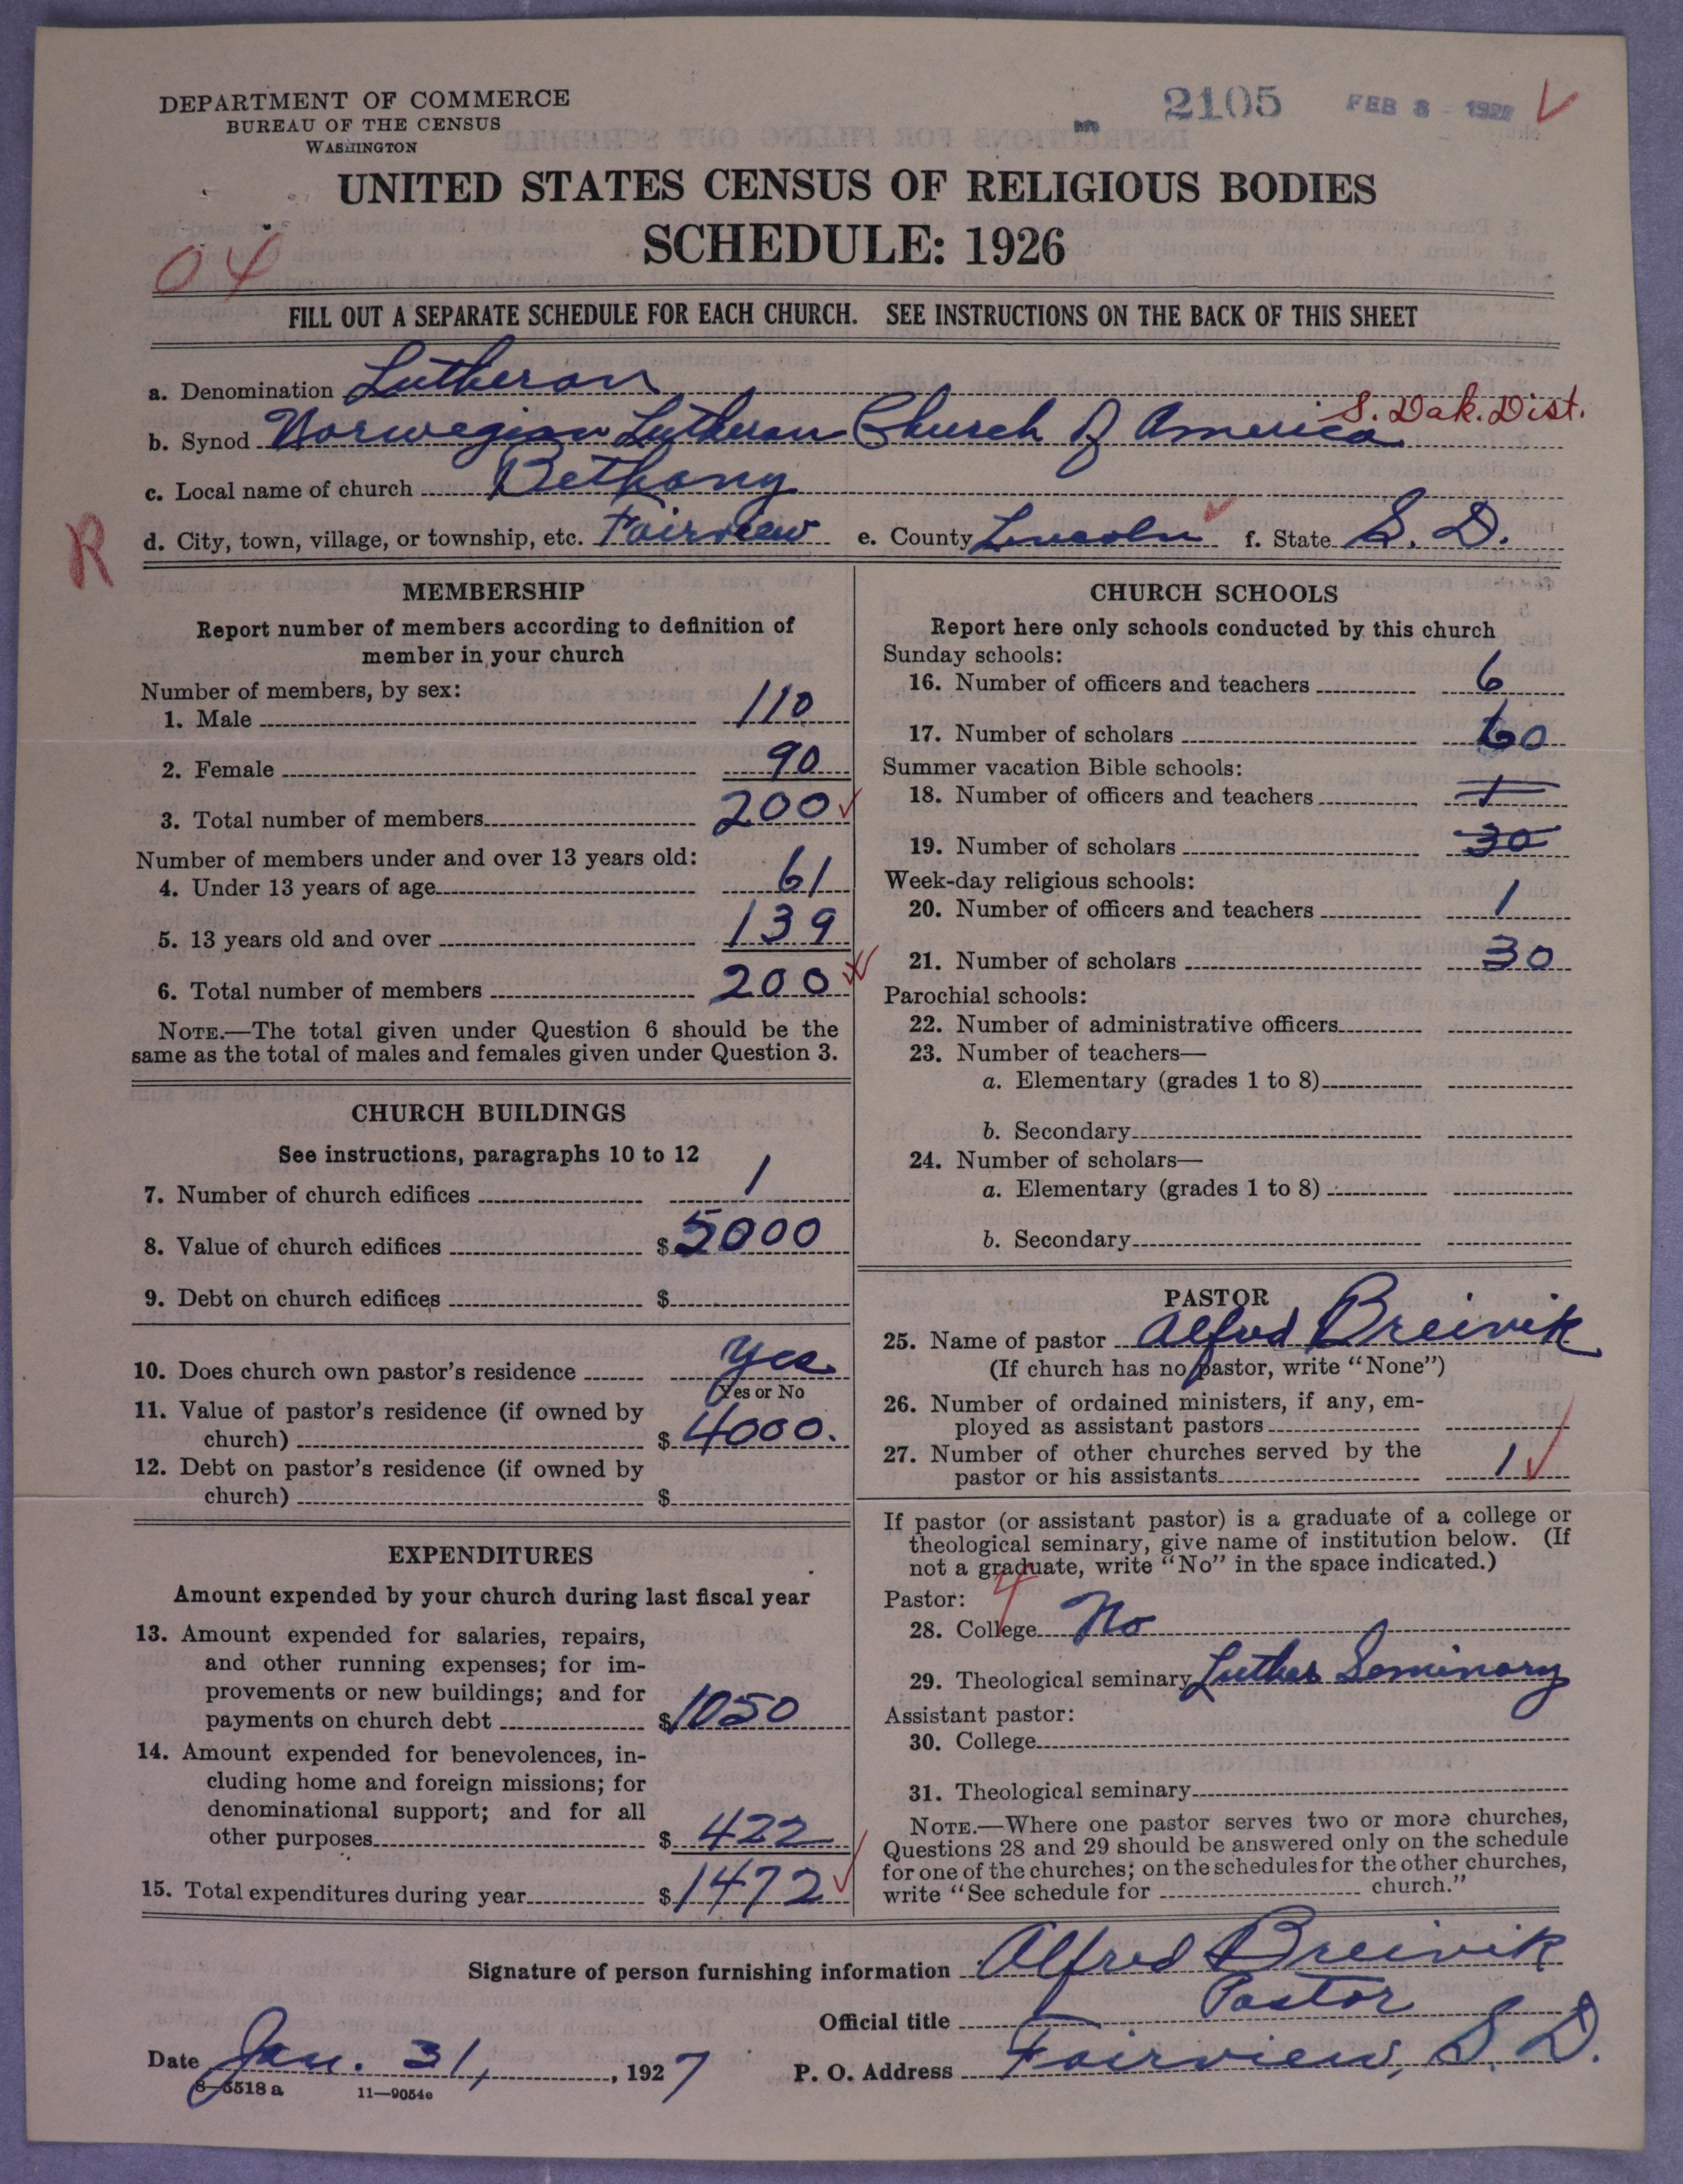 DEPARTMENT OF COMMERCE
BUREAU OF THE CENSUS
WASHINGTON
2105 FEB 8 - 192
UNITED STATES CENSUS OF RELIGIOUS BODIES
SCHEDULE: 1926
04
FILL OUT A SEPARATE SCHEDULE FOR EACH CHURCH. SEE INSTRUCTIONS ON THE BACK OF THIS SHEET
a. Denomination Lutheran
S. Dak. Dist.
b. Synod Norwegian Lutheran Church of America
c. Local name of church Bethany
R
d. City, town, village, or township, etc. Fairview e. County Lincoln f. State S. D.
MEMBERSHIP
Report number of members according to definition of
member in your church
Number of members, by sex:
1. Male 110
2. Female 90
3. Total number of members 200
Number of members under and over 13 years old:
4. Under 13 years of age 61
5. 13 years old and over 139
6. Total number of members 200
NOTE.—The total given under Question 6 should be the
same as the total of males and females given under Question 3.
CHURCH BUILDINGS
See instructions, paragraphs 10 to 12
7. Number of church edifices 1
8. Value of church edifices $5000
9. Debt on church edifices $
10. Does church own pastor's residence Yes
Yes or No
11. Value of pastor's residence (if owned by
church) $4000.
12. Debt on pastor's residence (if owned by
church) $
EXPENDITURES
Amount expended by your church during last fiscal year
13. Amount expended for salaries, repairs,
and other running expenses; for im-
provements or new buildings; and for
payments on church debt $1050
14. Amount expended for benevolences, in-
cluding home and foreign missions; for
denominational support; and for all
other purposes $422
15. Total expenditures during year $1472
CHURCH SCHOOLS
Report here only schools conducted by this church
Sunday schools:
16. Number of officers and teachers 6
17. Number of scholars 60
Summer vacation Bible schools:
18. Number of officers and teachers 1
19. Number of scholars 30
Week-day religious schools:
20. Number of officers and teachers 1
21. Number of scholars 30
Parochial schools:
22. Number of administrative officers
23. Number of teachers—
a. Elementary (grades 1 to 8)
b. Secondary
24. Number of scholars—
a. Elementary (grades 1 to 8)
b. Secondary
PASTOR
25. Name of pastor Alfred Breivik
(If church has no pastor, write "None")
26. Number of ordained ministers, if any, em-
ployed as assistant pastors
27. Number of other churches served by the
pastor or his assistants 1
If pastor (or assistant pastor) is a graduate of a college or
theological seminary, give name of institution below. (If
not a graduate, write "No" in the space indicated.)
Pastor:
28. College No
29. Theological seminary Luther Seminary
Assistant pastor:
30. College
31. Theological seminary
NOTE.—Where one pastor serves two or more churches,
Questions 28 and 29 should be answered only on the schedule
for one of the churches; on the schedules for the other churches,
write "See schedule for church."
Signature of person furnishing information Alfred Breivik
Official title Pastor
Date Jan. 31, 1927 P. O. Address Fairview, S. D.
8-5518 a 11—9054e